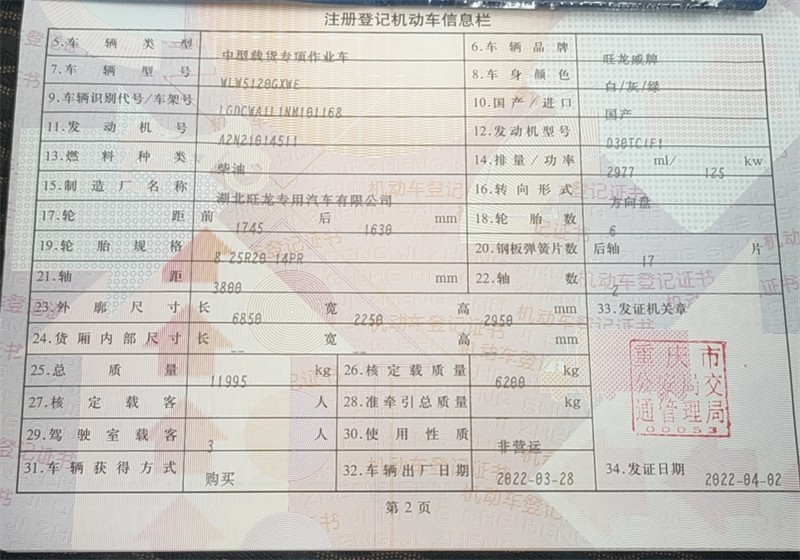 注册登记机动车信息栏
5.车辆类型 中型载货专项作业车 6.车辆品牌 旺龙威牌
7.车辆型号 WLW5120GXWE 8.车身颜色 白/灰/绿
9.车辆识别代号/车架号 LGDCWA1L1NM101168 10.国产/进口 国产
11.发动机号 A2N21014511 12.发动机型号 D30TCIF1
13.燃料种类 柴油 14.排量/功率 2977 ml/ 125 kw
15.制造厂名称 湖北旺龙专用汽车有限公司 16.转向形式 方向盘
17.轮距 前 1745 后 1630 mm 18.轮胎数 6
19.轮胎规格 8.25R20 14PR 20.钢板弹簧片数 后轴 17 片
21.轴距 3800 mm 22.轴数 2
23.外廓尺寸 长 6850 宽 2250 高 2950 mm 33.发证机关章
24.货厢内部尺寸 长 -- 宽 -- 高 -- mm
25.总质量 11995 kg 26.核定载质量 6200 kg
重庆市
公安局交
通管理局
00053
27.核定载客 -- 人 28.准牵引总质量 -- kg
29.驾驶室载客 3 人 30.使用性质 非营运
31.车辆获得方式 购买 32.车辆出厂日期 2022-03-28 34.发证日期 2022-04-02
第2页